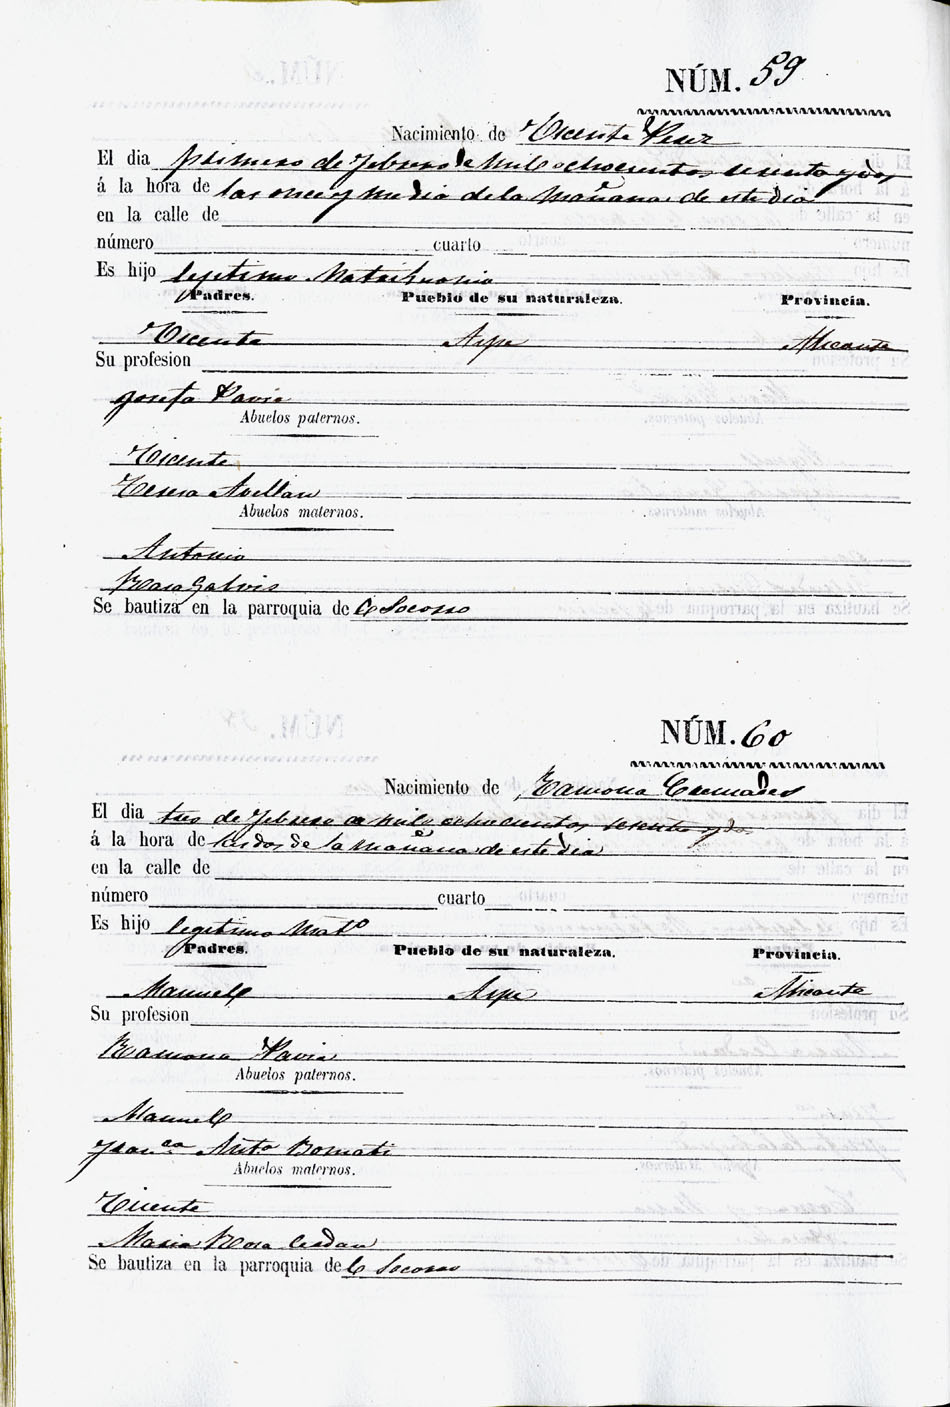 NÚM. 59
Nacimiento de Vicente Perez
El dia primero de Febrero de mil ochocientos sesenta y dos
á la hora de las once y media de la mañana de este dia
en la calle de
número cuarto
Es hijo legitimo Matrimonio
Padres. Pueblo de su naturaleza. Provincia.
Vicente Aspe Alicante
Su profesion
Josefa Pavia
Abuelos paternos.
Vicente
Teresa Avellan
Abuelos maternos.
Antonio
Rosa Galvis
Se bautiza en la parroquia de el Socorro
NÚM. 60
Nacimiento de Ramona Cremades
El dia tres de Febrero de mil ochocientos sesenta y dos
á la hora de las dos de la mañana de este dia
en la calle de
número cuarto
Es hijo legitimo Mato
Padres. Pueblo de su naturaleza. Provincia.
Manuel Aspe Alicante
Su profesion
Ramona Pavia
Abuelos paternos.
Manuel
Franca Anta Bomati
Abuelos maternos.
Vicente
Maria Rosa Cerdan
Se bautiza en la parroquia de el Socorro